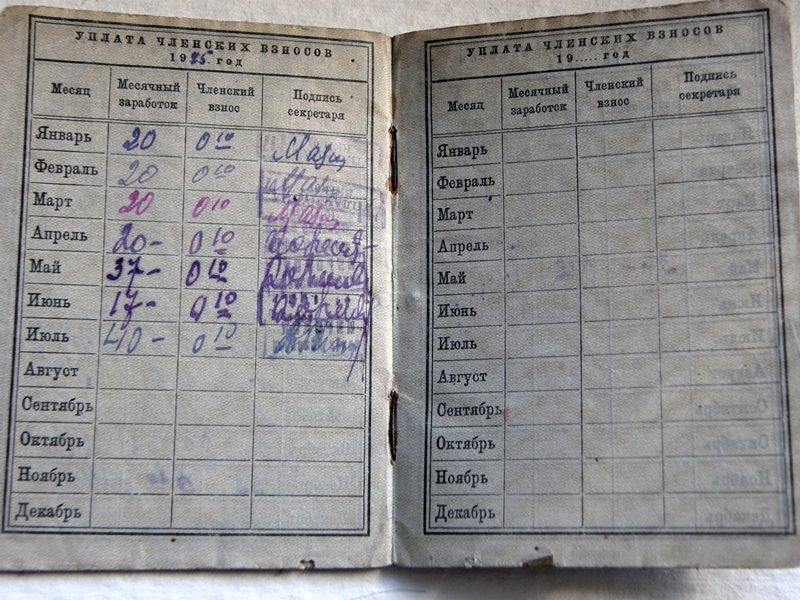 УПЛАТА ЧЛЕНСКИХ ВЗНОСОВ
1985 год
Месяц Месячный заработок Членский взнос Подпись секретаря
Январь 20 0 10
Февраль 20 0 10
Март 20 0 10
Апрель 20- 0 10
Май 37- 0 10
Июнь 17- 0 10
Июль 40- 0 10
Август
Сентябрь
Октябрь
Ноябрь
Декабрь
УПЛАТА ЧЛЕНСКИХ ВЗНОСОВ
19..... год
Месяц Месячный заработок Членский взнос Подпись секретаря
Январь
Февраль
Март
Апрель
Май
Июнь
Июль
Август
Сентябрь
Октябрь
Ноябрь
Декабрь